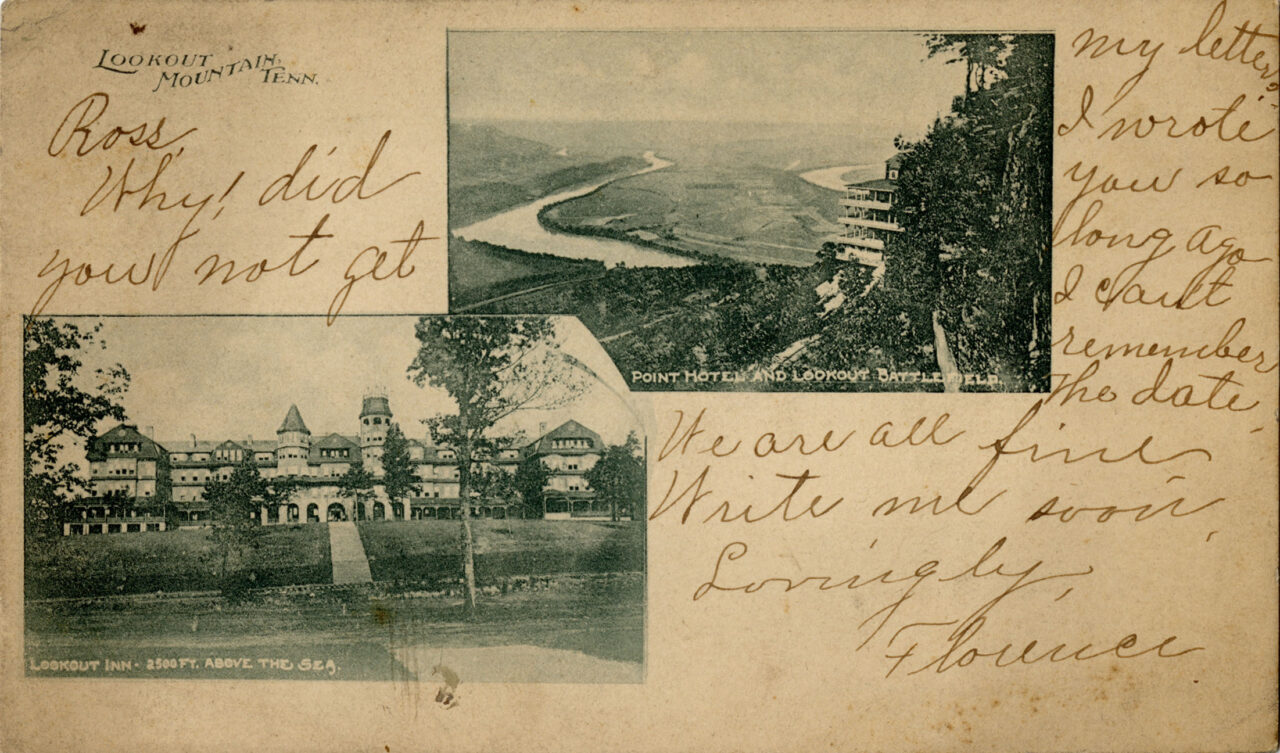 LOOKOUT
MOUNTAIN,
TENN.
Ross,
Why! did
you not get
my letter?
I wrote
you so
long ago
I can't
remember
the date.
We are all fine
Write me soon.
Lovingly,
Florence
POINT HOTEL AND LOOKOUT BATTLEFIELD.
LOOKOUT INN - 2500 FT. ABOVE THE SEA.